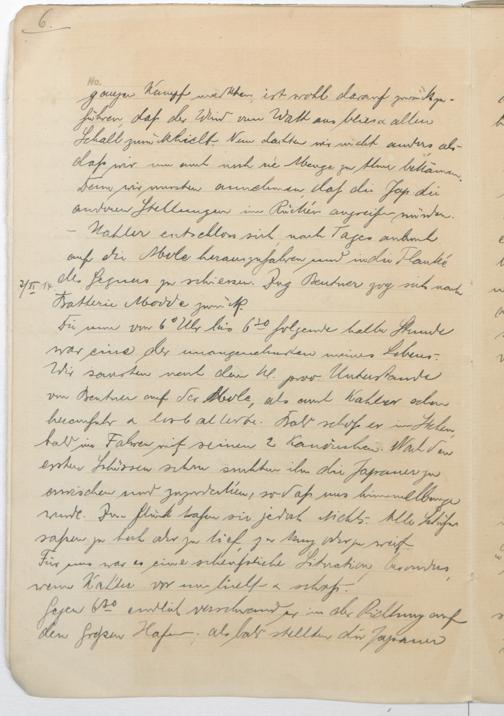 6.
ganzen Kampf merkten, ist wohl darauf zurückzu-
führen, daß der Wind vom Watt aus blies u allen
Schall zurückhielt. Nun dachten wir nicht anders als
daß wir nun auch noch die Menge zu tun bekämen.
Denn wir mussten annehmen daß die Jap. die
anderen Stellungen im Rücken angreifen würden.
- Kahler entschloss sich, nach Tages anbruch
auf die Mole herauszufahren und in die Flanke
2/XI 14 des Gegners zu schiessen. Zug Beutner zog sich nach
Batterie zurück.
Die nun von 6° Uhr bis 6³⁰ folgende halbe Stunde
war eine der unangenehmsten meines Lebens.
Wir sausten nach dem kl. Unterstande
von Beutner auf der Mole, als auch Kahler schon
heranfuhr u losballerte. Bald schoß er im Stehen,
bald im Fahren mit seinen 2 Kanönchen. Nach den
ersten Schüssen schon suchten ihn die Japaner zu
erwischen und zuzudecken, so daß uns himmelbange
wurde. Zum Glück trafen sie jedoch nichts. Alle Schüsse
sassen zu hoch oder zu tief, zu kurz oder zu weit.
Für uns war es eine scheußliche Situation, besonders,
wenn Kahler vor uns hielt u schoß.
Gegen 6³⁰ endlich verschwand er in der Richtung auf
den Großen Hafen, alsbald stellten die Japaner